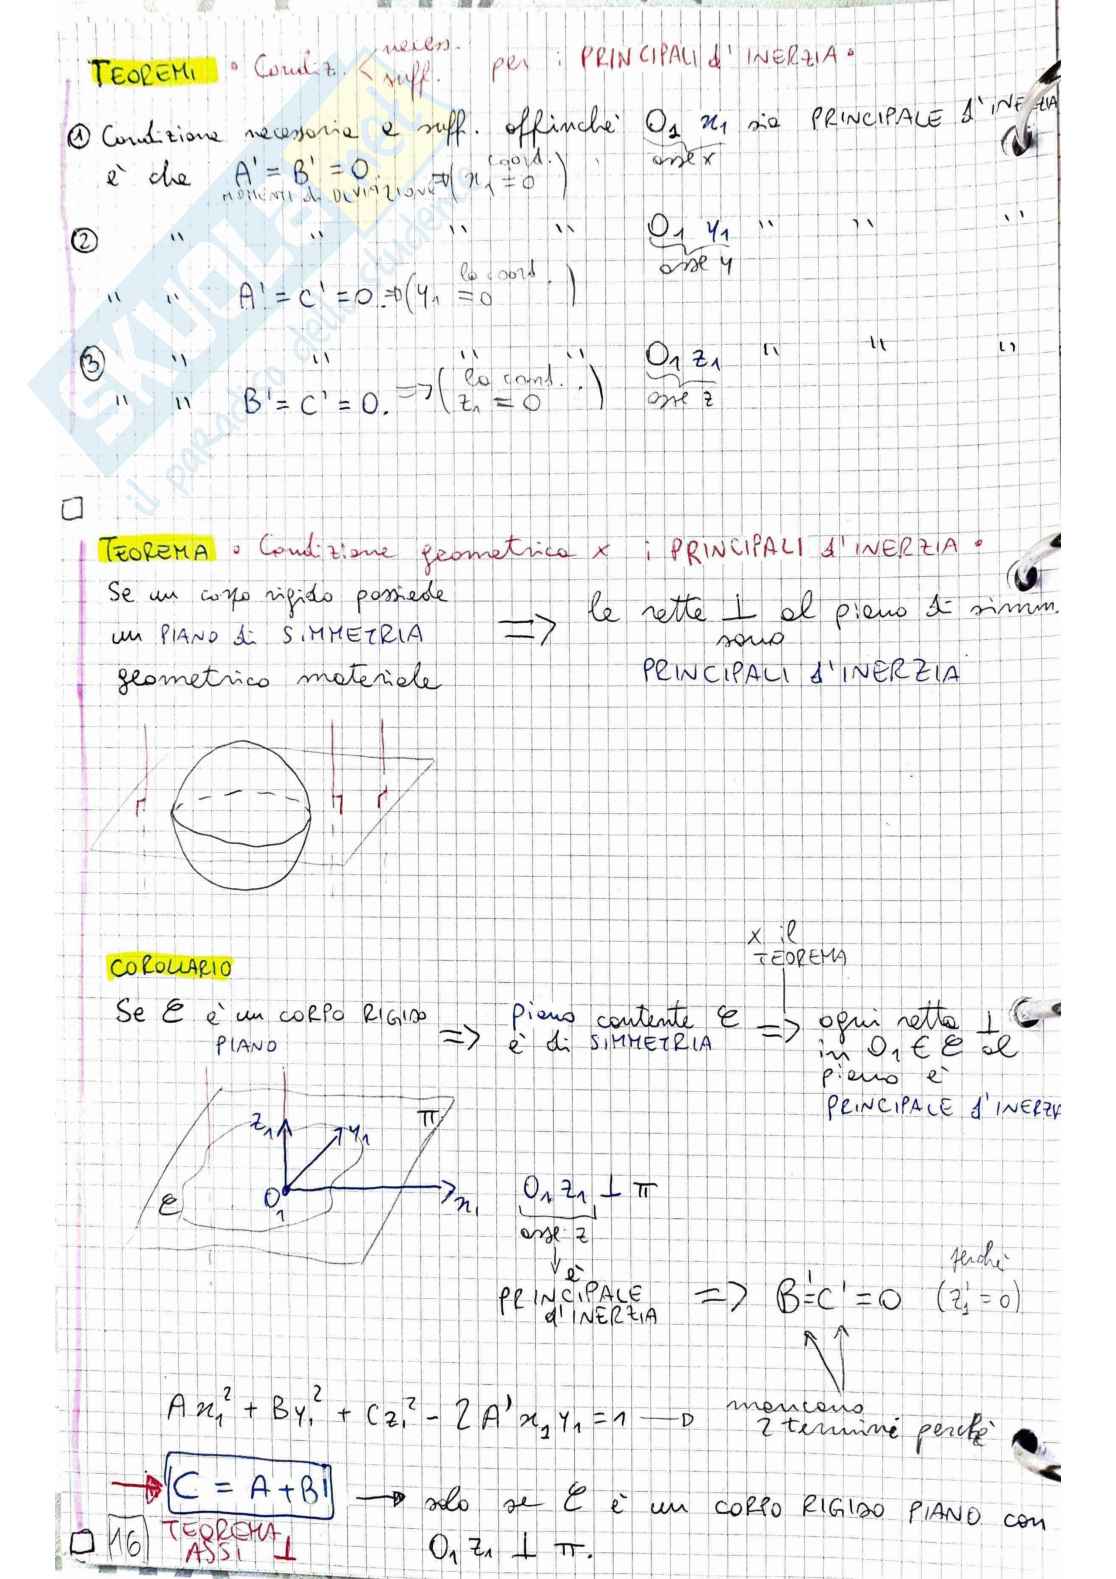 TEOREMI • Condiz. < necess. suff. per i PRINCIPALI d'INERZIA •
① Condizione necessaria e suff. affinché O₁ x₁ sia PRINCIPALE d'INERZIA
asse x
è che A' = B' = 0. ⇒ ( coord. x₁ = 0 )
MOMENTI di DEVIAZIONE
② " " " " O₁ y₁ " " "
asse y
" " A' = C' = 0. ⇒ ( la coord. y₁ = 0 )
③ " " " " O₁ z₁ " " "
asse z
" " B' = C' = 0. ⇒ ( la coord. z₁ = 0 )
SKUOLA.net
il paradiso dello studente
TEOREMA • Condizione geometrica x i PRINCIPALI d'INERZIA •
Se un corpo rigido possiede
un PIANO di SIMMETRIA
geometrico materiale
⇒ le rette ⊥ al piano di simm.
sono
PRINCIPALI d'INERZIA
COROLLARIO
x il
TEOREMA
Se C è un CORPO RIGIDO
PIANO
⇒ piano contente C
è di SIMMETRIA
⇒ ogni retta ⊥
in O₁ ∈ C al
piano è
PRINCIPALE d'INERZIA
z₁ y₁ π
C O₁ x₁
O₁ z₁ ⊥ π
asse z
↓ è
PRINCIPALE
d'INERZIA
⇒ B' = C' = 0 (perché z₁' = 0)
Ax₁² + By₁² + Cz₁² - 2A'x₁y₁ = 1 → mancano
2 termini perché
→ C = A + B → solo se C è un CORPO RIGIDO PIANO con
O₁ z₁ ⊥ π.
TEOREMA
ASSI ⊥
16